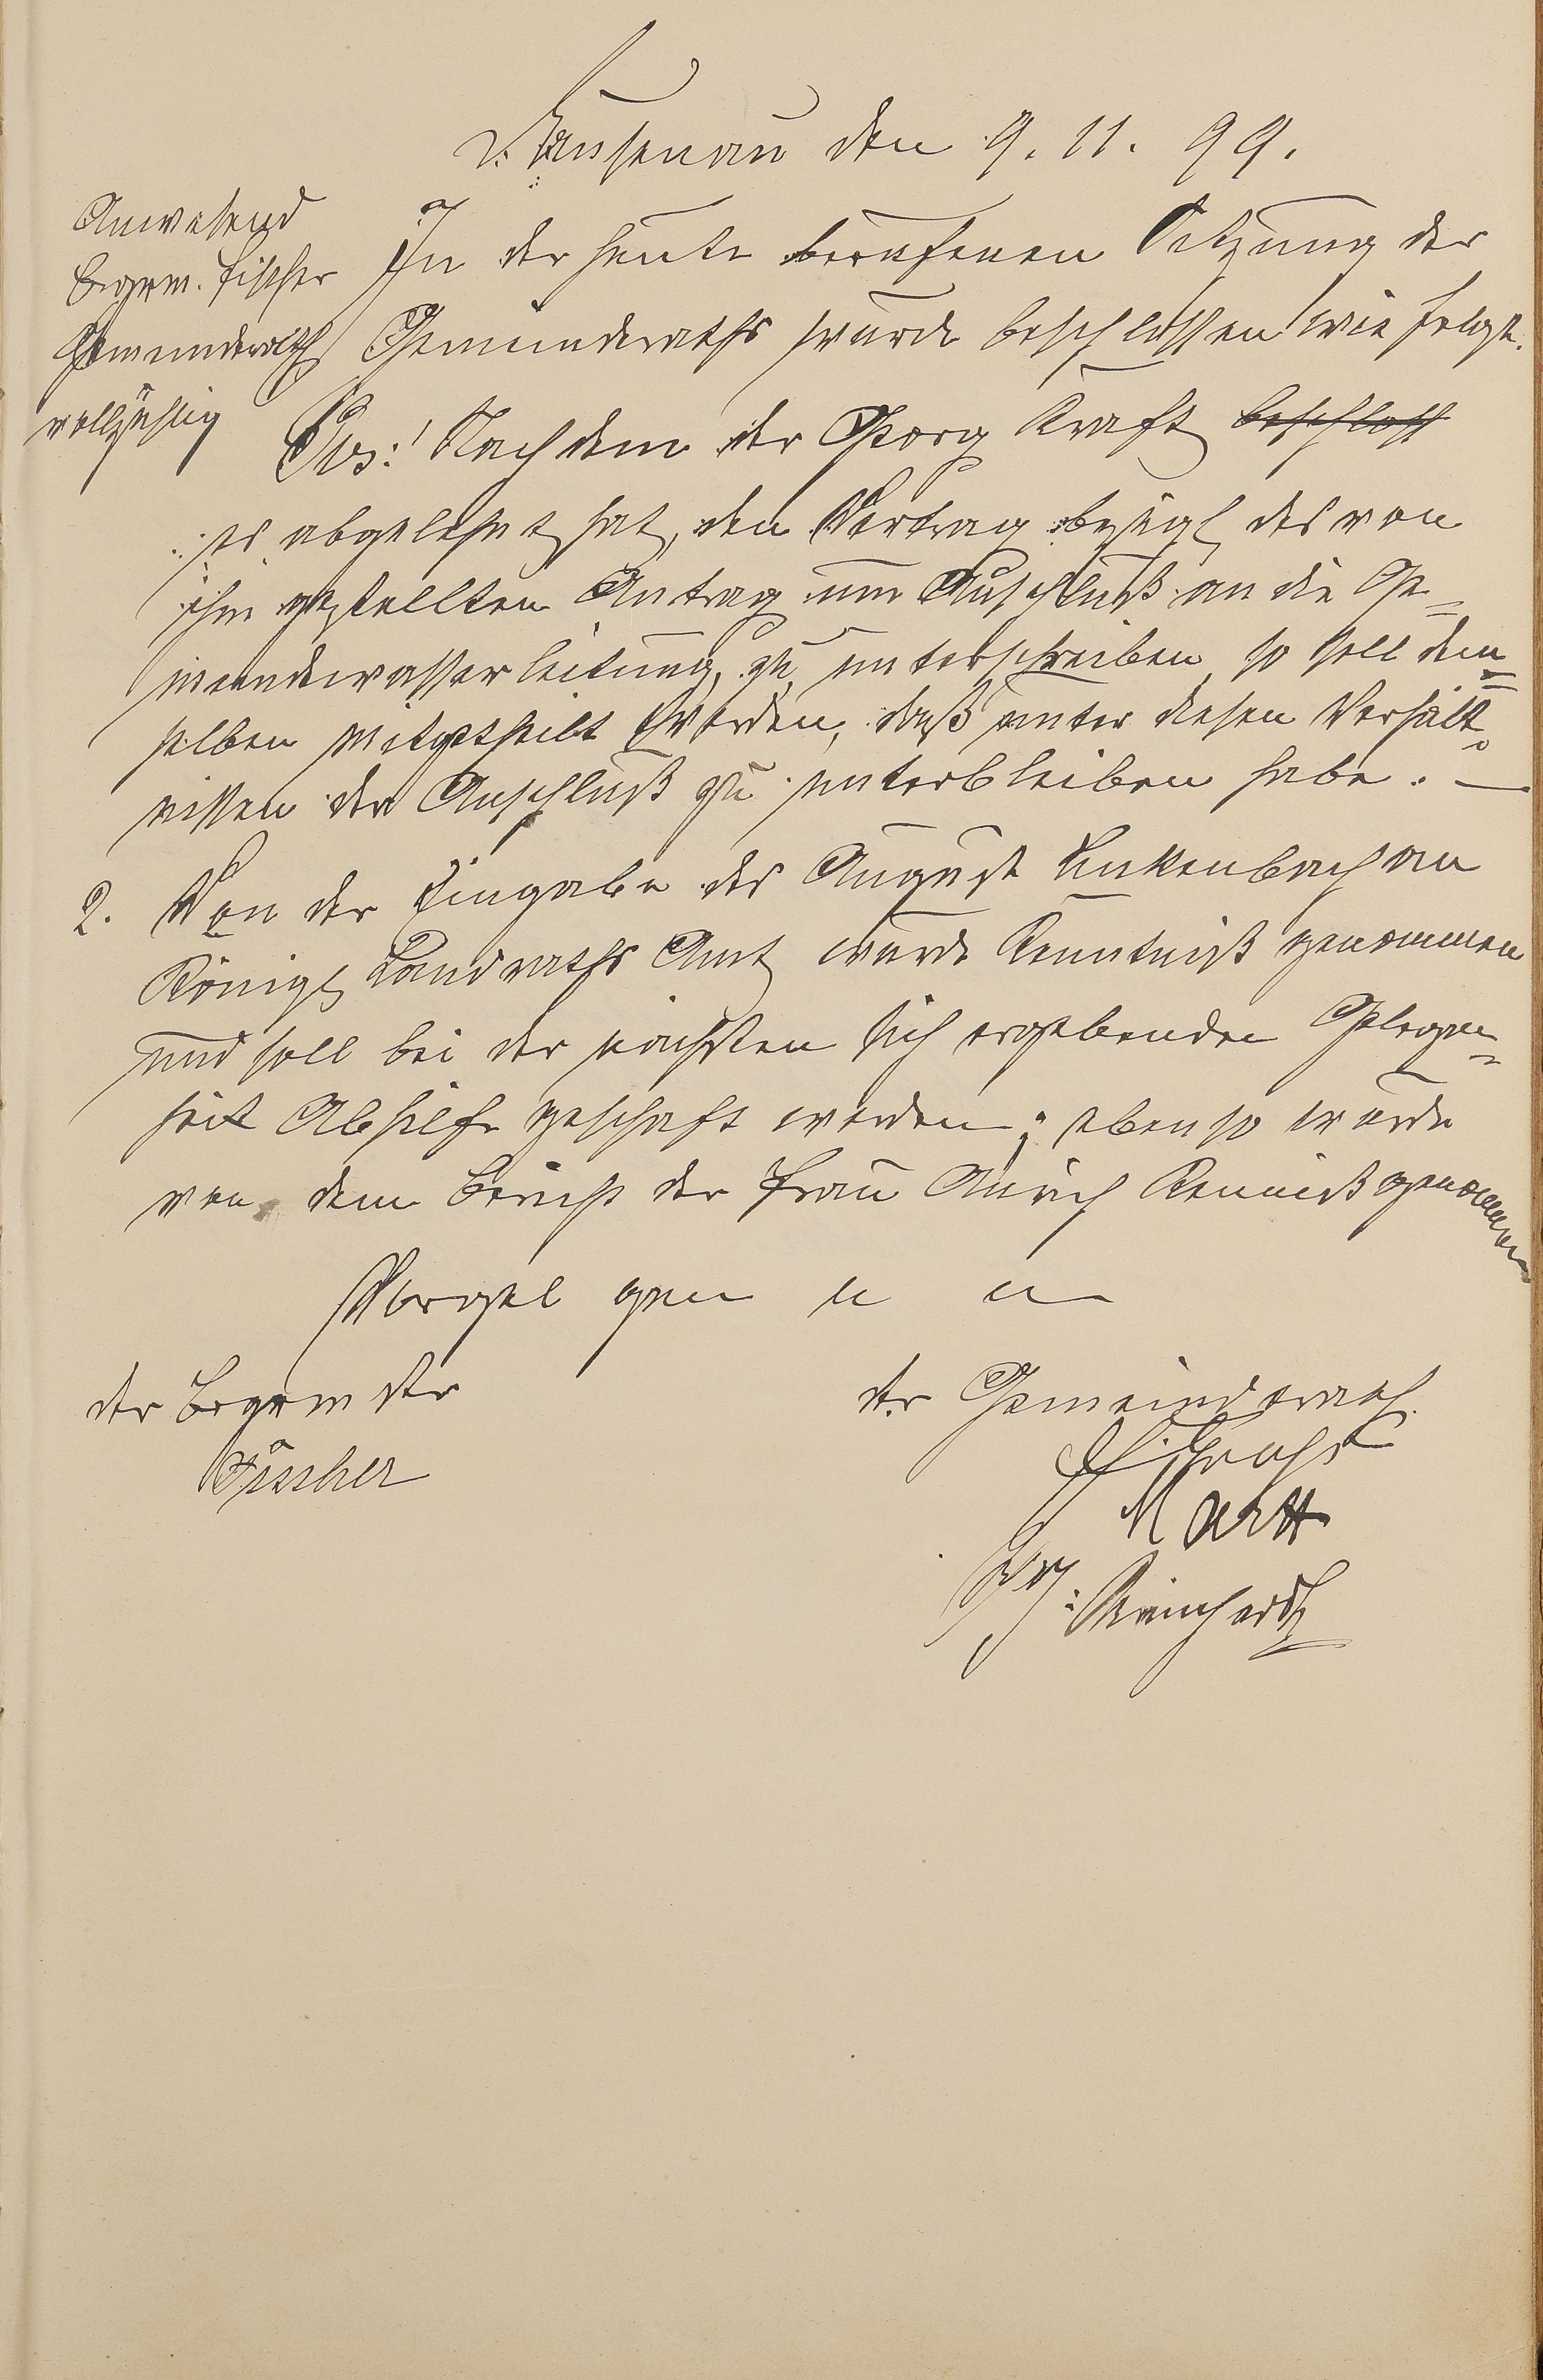 v. Hausenau den 9. 11. 99.
Anwesend
Bgrm. Fischer
Gemeinderath
vollzählig
In der heute berufenen Sitzung der
Gemeinderaths wurde beschlossen wie folgt.
Nachdem der Georg Kraft beschloß
es abgelehnt hat, den Vertrag bezügl des von
ihm gestellten Antrag um Anschluß an die Ge=
meindewasserleitung, zu unterschreiben so soll dem=
selben mitgetheilt werden, daß unter diesen Verhält=
nissen der Anschluß zu unterbleiben habe. —
2. Von der Eingabe des August Linkenbach an
Königl Landraths Amt wurde Kenntniß genommen
und soll bei der nächsten sich ergebenden Gelegen=
heit Abhilfe geschaft werden; ebenso wurde
von dem Bericht der Frau Kenniß genommen
Vorgel gen u u
der Bgrmster
Fischer
der Gemeinderath.
Marx
Reinhardt